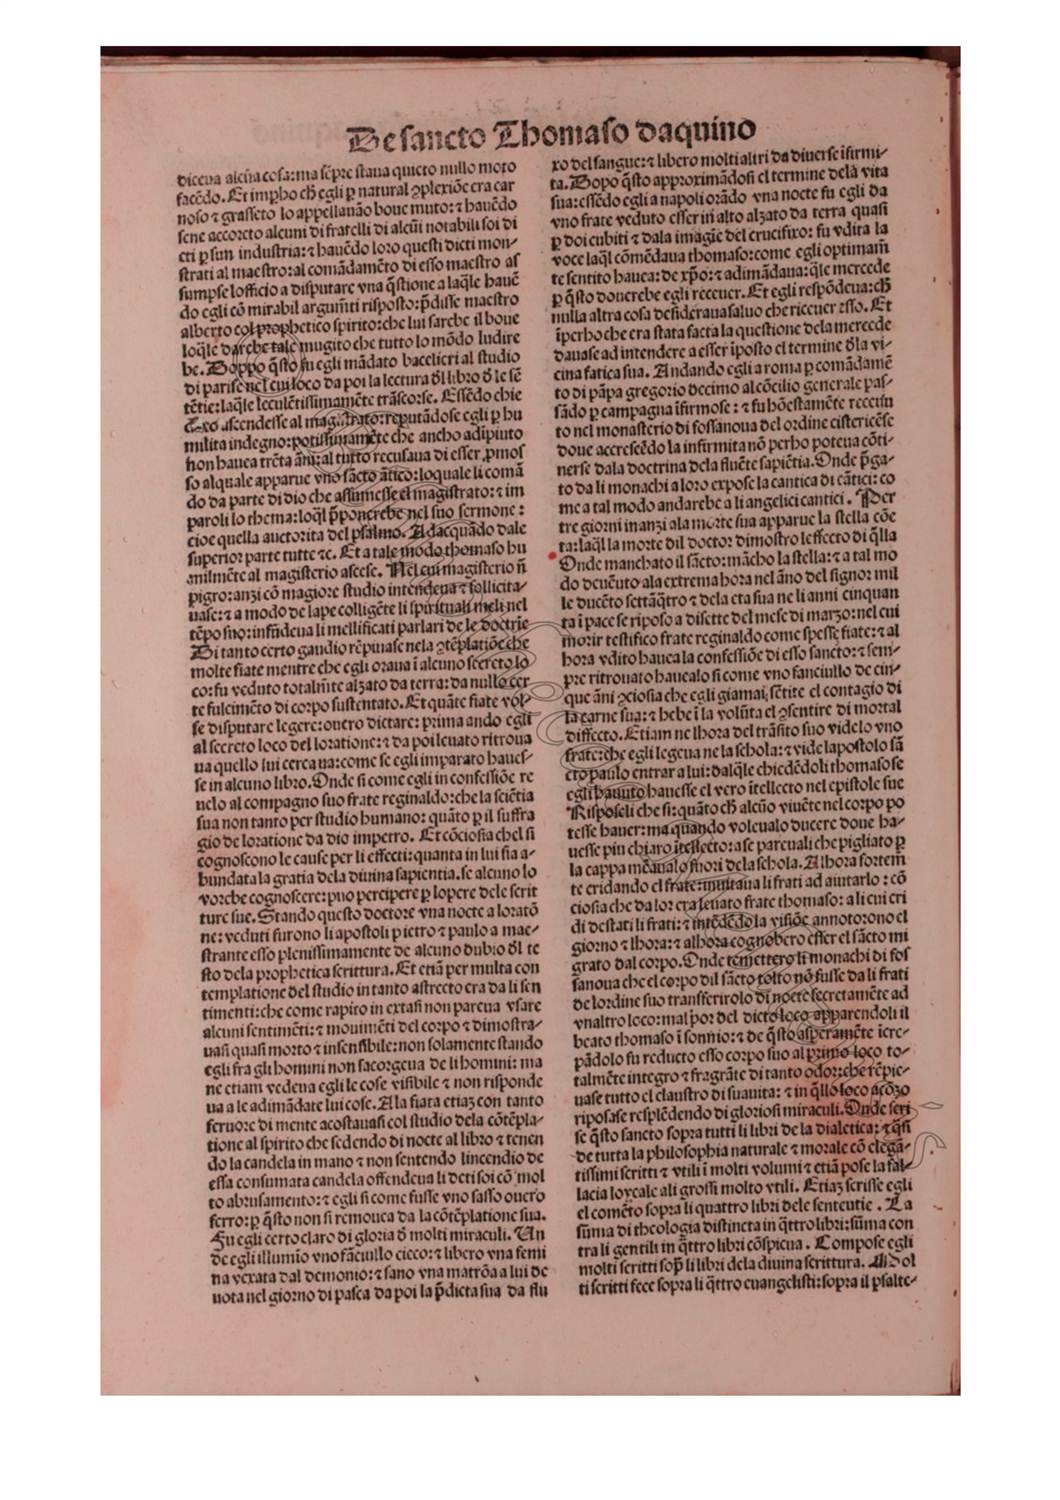 De sancto Thomaso daquino
diceua alcūa cosa: ma sēpre staua quieto nullo moto
facēdo. Et imꝑho ch̄ egli ꝑ natural ꝯplexiōe era car
noso ⁊ grasseto lo appellauāo boue muto: ⁊ hauēdo
sene accorcto alcuni di fratelli di alcūi notabili soi di
cti ꝑ sun industria: ⁊ hauēdo loro questi dicti mon-
strati al maestro: al comādamēto di esso maestro as
sumpse lofficio a disputare vna q̄stione a laq̄le hauē
do egli cō mirabil argum̄ti risposto: p̄disse maestro
alberto col prophetico spirito: che lui sarebe il boue
loq̄le darebe tale mugito che tutto lo mōdo ludire
be. Doppo q̄sto fu egli mādato bacelieri al studio
di parise nel cui loco da poi la lectura d̄l libro d̄ le sē
tētie: laq̄le leculētissimamēte trāscorse. Essēdo chie
sto ascendesse al magistrato: reputādose egli ꝑ hu
milita indegno: potissimamēte che ancho adīpiuto
non hauea trēta āni: al tutto recusaua di esser ꝓmos
so alquale apparue vno sācto ātico: loquale li comā
do da parte di dio che assumesse el magistrato: ⁊ im
paroli lo thema: loq̄l p̄ponerebe nel suo sermone:
cioe quella auctorita del psalmo. Adacquādo dale
superior parte tutte ⁊c. Et a tale modo thomaso hu
milmēte al magisterio ascese. Nel cui magisterio n̄
pigro: anzi cō magiore studio intendeua ⁊ sollicita-
uase: ⁊ a modo de lape colligēte li spirituali meli nel
tēpo suo: infūdeua li mellificati parlari de le doctrīe
Di tanto certo gaudio rēpiuase nela ꝯtēplatiōe che
molte fiate mentre che egli oraua ī alcuno secreto lo
co: fu veduto totalm̄te alzato da terra: da nullo cer
te fulcimēto di corpo sustentato. Et quāte fiate vol-
se disputare legere: ouero dictare: prima ando egli
al secreto loco del loratione: ⁊ da poi leuato ritroua
ua quello lui cerca ua: come se egli imparato haues-
se in alcuno libro. Onde si come egli in confessiōe re
uelo al compagno suo frate reginaldo: che la sciētia
sua non tanto per studio humano: quāto ꝑ il suffra
gio de loratione da dio impetro. Et cōciosia chel si
cognoscono le cause per li effecti: quanta in lui sia a-
bundata la gratia dela diuina sapientia. se alcuno lo
vorebe cognoscere: puo percipere ꝑ lopere dele scrit
ture sue. Stando questo doctore vna nocte a loratō
ne: veduti furono li apostoli pietro ⁊ paulo a mae-
strante esso plenissimamente de alcuno dubio d̄l te
sto dela prophetica scrittura. Et etiā per multa con
templatione del studio in tanto astrecto era da li sen
timenti: che come rapito in extasi non pareua vsare
alcuni sentimēti: ⁊ mouimēti del corpo ⁊ dimostra-
uasi quasi morto ⁊ insensibile: non solamente stando
egli fra gli homini non sacorgeua de li homini: ma
ne etiam vedeua egli le cose visibile ⁊ non risponde
ua a le adimādate lui cose. Ala fiata etiaz con tanto
feruore di mente acostauasi col studio dela cōtēpla-
tione al spirito che sedendo di nocte al libro ⁊ tenen
do la candela in mano ⁊ non sentendo lincendio de
essa consumata candela offendeua li deti soi cō mol
to abrusamento: ⁊ egli si come fusse vno sasso ouero
ferro: ꝑ q̄sto non si remouea da la cōtēplatione sua.
Fu egli certo claro di gloria d̄ molti miraculi. Un
de egli illumio vno fāciullo cieco: ⁊ libero vna femi
na vexata dal demonio: ⁊ sano vna matrōa a lui de
uota nel giorno di pasca da poi la p̄dicta sua da flu
xo del sangue: ⁊ libero molti altri da diuerse īfirmi-
ta. Dopo q̄sto approximādosi el termine dela vita
sua: essēdo egli a napoli orādo vna nocte fu egli da
vno frate veduto esser in alto alzato da terra quasi
ꝑ doi cubiti ⁊ dala imagīe del crucifixo: fu vdita la
voce laq̄l cōmēdaua thomaso: come egli optimam̄
te sentito hauea: de xp̄o: ⁊ adimādaua: q̄le mercede
ꝑ q̄sto douerebe egli receuer. Et egli respōdeua: ch̄
nulla altra cosa desideraua saluo che riceuer esso. Et
īperho che era stata facta la questione dela mercede
dauase ad intendere a esser īposto el termine d̄la vi-
cina fatica sua. Andando egli a roma ꝑ comādamē
to di pāpa gregorio decimo al cōcilio generale pas-
sādo ꝑ campagna īfirmose: ⁊ fu hōestamēte receuu
to nel monasterio di fossanoua del ordine cisterciēse
doue accrescēdo la infirmita nō perho poteua cōti-
nerse dala doctrina dela fluēte sapiētia. Onde p̄ga-
to da li monachi a loro expose la cantica di cātici: co
me a tal modo andarebe a li angelici cantici. Per
tre giorni inanzi ala morte sua apparue la stella cōe
ta: laq̄l la morte dil doctor dimostro leffecto di q̄lla
Onde manchato il sācto: mācho la stella: ⁊ a tal mo
do deuēuto ala extrema hora nel āno del signor mil
le ducēto settāq̄tro ⁊ dela eta sua ne li anni cinquan
ta ī pace se riposo a disette del mese di marzo: nel cui
morir testifico frate reginaldo come spesse fiate: ⁊ al
hora vdito hauea la confessiōe di esso sancto: ⁊ sem-
pre ritrouato hauealo si come vno fanciullo de cin-
que āni ꝯciosia che egli giamai sētite el contagio di
la carne sua: ⁊ hebe ī la volūta el ꝯsentire di mortal
diffecto. Etiam ne lhora del trāsito suo videlo vno
frate: che egli legeua ne la schola: ⁊ vide lapostolo sā
cto paulo entrar a lui: dalq̄le chiedēdoli thomaso se
egli hauuto hauesse el vero ītellecto nel epistole sue
Risposeli che si: quāto ch̄ alcūo viuēte nel corpo po
tesse hauer: ma quando voleualo ducere doue ha-
uesse piu chiaro ītellecto: a se pareuali che pigliato ꝑ
la cappa mēaualo fuori dela schola. Alhora fortem̄
te cridando el frate: inuitaua li frati ad aiutarlo: cō
ciosia che da lor era leuato frate thomaso: a li cui cri
di destati li frati: ⁊ intēdēdo la visiōe annotorono el
giorno ⁊ lhora: ⁊ alhora cognobero esser el sācto mi
grato dal corpo. Onde temettero li monachi di fos
sanoua che el corpo dil sācto tolto nō fusse da li frati
de lordine suo transferirolo di nocte secretamēte ad
vnaltro loco: mal p̄or del dicto loco apparendoli il
beato thomaso ī sonnio: ⁊ de q̄sto asperamēte īcre-
pādolo fu reducto esso corpo suo al primo loco to-
talmēte integro ⁊ fragrāte di tanto odor: che rēpie-
uase tutto el claustro di suauita: ⁊ in q̄llo loco acōzo
riposase resplēdendo di gloriosi miraculi. Onde scri
se q̄sto sancto sopra tutti li libri de la dialetica: ⁊ q̄si
de tutta la philosophia naturale ⁊ morale cō elegā-
tissimi scritti ⁊ vtili ī molti volumi ⁊ etiā pose la fal-
lacia loycale ali grossi molto vtili. Etiaz scrisse egli
el comēto sopra li quattro libri dele sententie. La
sūma di theologia distincta in q̄ttro libri: sūma con
tra li gentili in q̄ttro libri cōspicua. Compose egli
molti scritti sop̄ li libri dela diuina scrittura. Mol
ti scritti fece sopra li q̄ttro euangelisti: sopra il psalte-